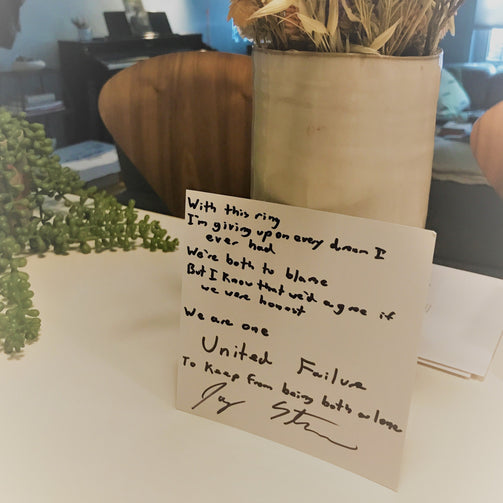 With this ring
I'm giving up on every dream I
ever had
We're both to blame
But I know that we'd agree if
we were honest
We are one
United Failure
To keep from being both alone
Jay